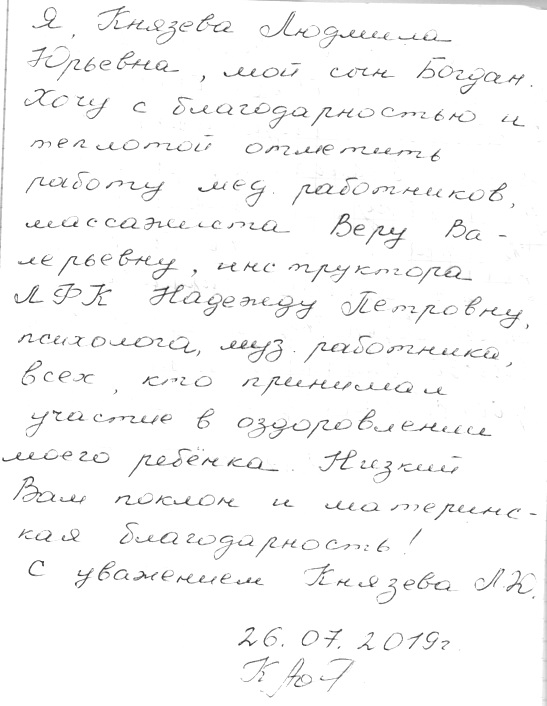 Я, Князева Людмила
Юрьевна, мой сын Богдан.
Хочу с благодарностью и
теплотой отметить
работу мед. работников,
массажиста Веру Ва-
лерьевну, инструктора
ЛФК Надежду Петровну,
психолога, муз. работника,
всех, кто принимал
участие в оздоровлении
моего ребёнка. Низкий
Вам поклон и материнс-
кая благодарность!
С уважением Князева Л.Ю.
26.07.2019г